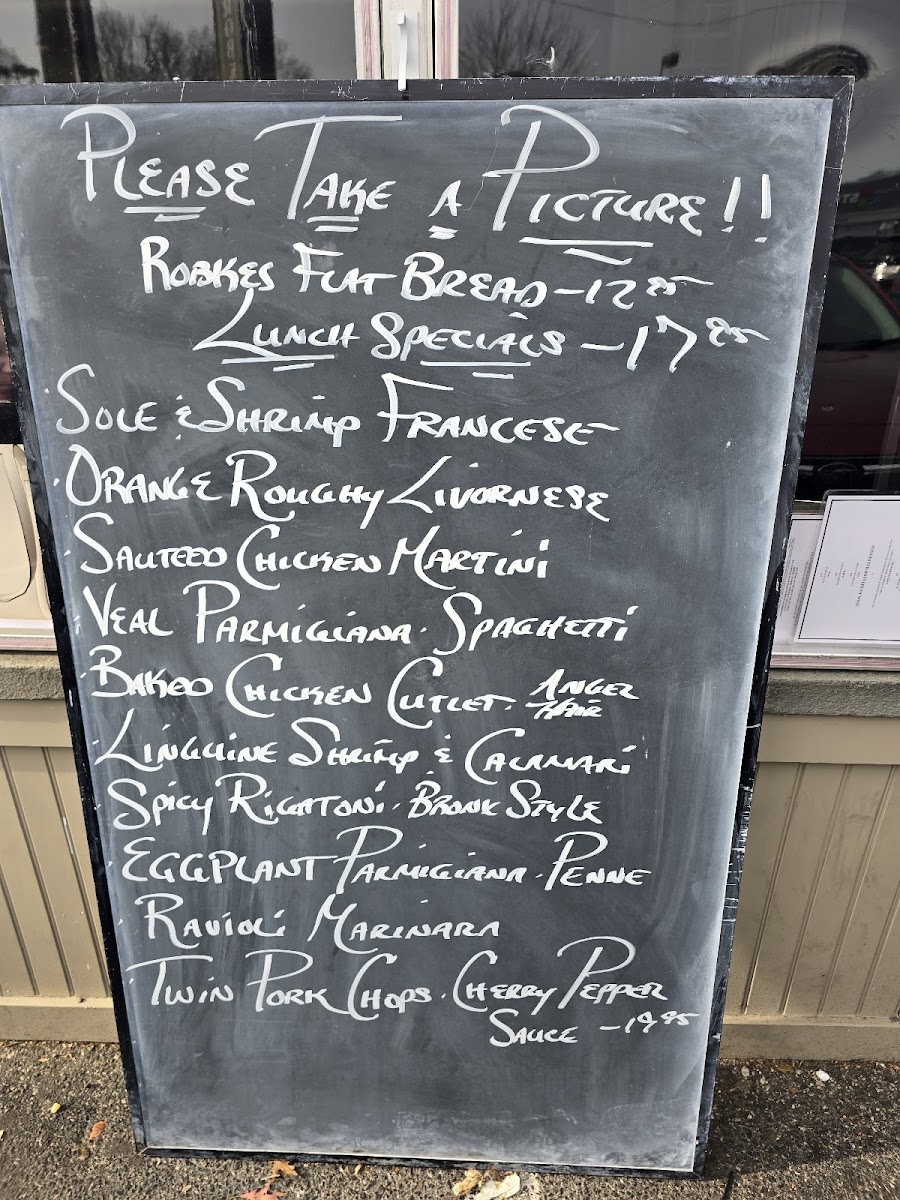 PLEASE TAKE A PICTURE!!
ROBKES FLAT BREAD - 12 95
LUNCH SPECIALS - 17 95
· SOLE & SHRIMP FRANCESE
· ORANGE ROUGHY LIVORNESE
· SAUTEED CHICKEN MARTINI
· VEAL PARMIGIANA · SPAGHETTI
· BAKED CHICKEN CUTLET · ANGEL HAIR
· LINGUINE SHRIMP & CALAMARI
· SPICY RIGATONI · BRONX STYLE
· EGGPLANT PARMIGIANA · PENNE
· RAVIOLI MARINARA
· TWIN PORK CHOPS · CHERRY PEPPER
SAUCE - 19 95